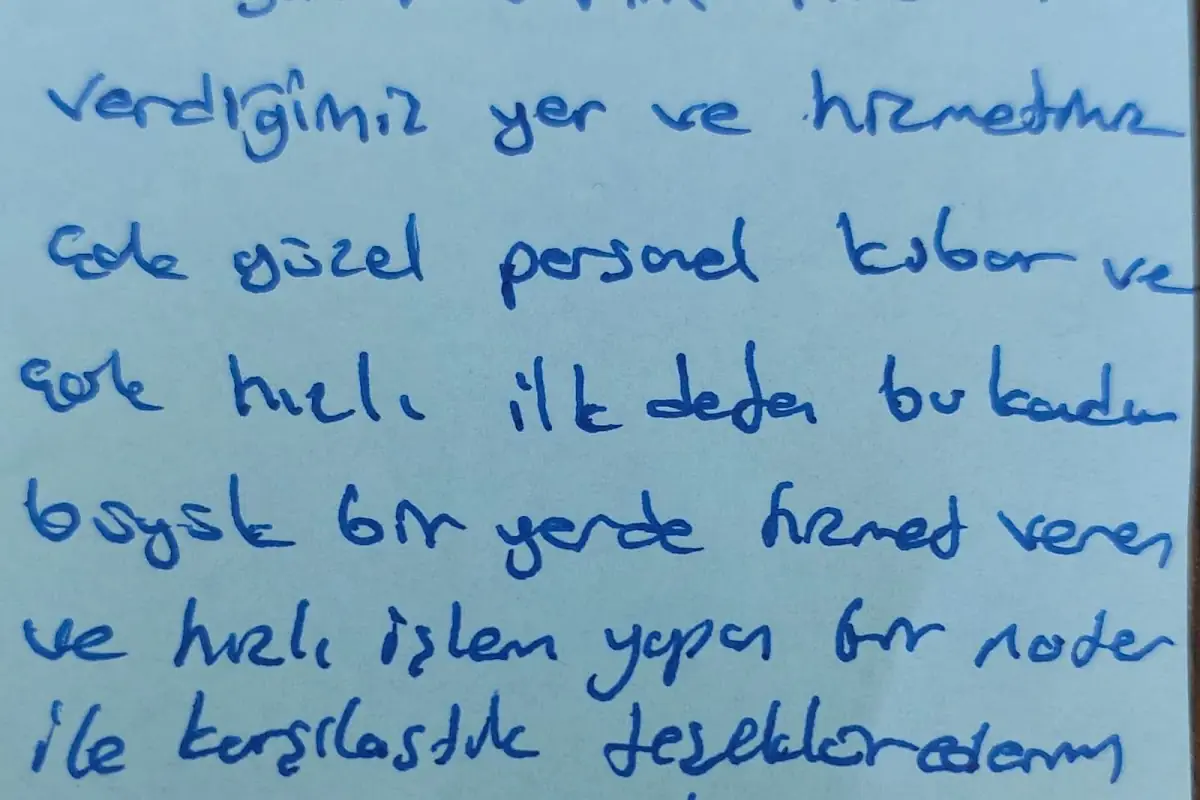 verdiğimiz yer ve hizmetiniz
çok güzel personel kibar ve
çok hızlı ilk defa bu kadar
büyük bir yerde hizmet veren
ve hızlı işlem yapan bir noter
ile karşılaştık teşekkür ederim